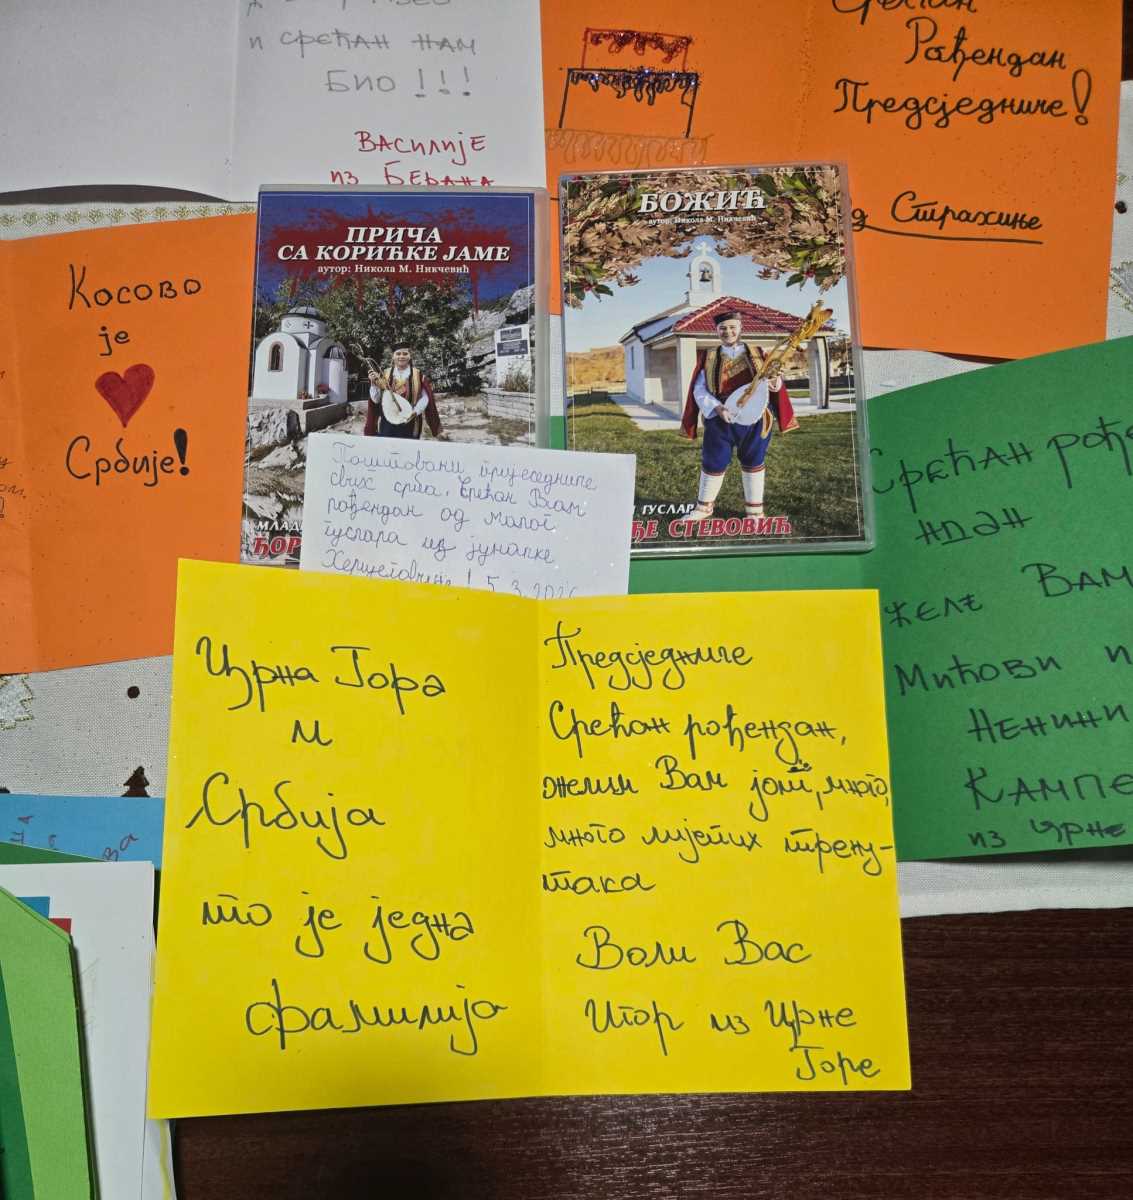 и СРЕЋАН НАМ
БИО !!!
ВАСИЛИЈЕ
из БЕРАНА
Срећан
Рођендан
Предсједниче!
Страхиње
Косово
је
Србије!
ПРИЧА
СА КОРИЋКЕ ЈАМЕ
аутор: Никола М. Никчевић
МЛАД
ЂОР
БОЖИЋ
аутор: Никола М. Никчевић
ГУСЛАР
ЂЕ СТЕВОВИЋ
Поштовани прједседниче
свих срба. Срећан Вам
рођендан од малог
гуслара из јуначке
Херцеговине! 5.3.2026
СРЕЋАН рође
НДАН
ЖЕЛЕ ВАМ
МИЋОВИ И
НЕНИНИ
КАМПЕ
из ЦРНЕ
Црна Гора
и
Србија
то је једна
фамилија
Предсједниче
Срећан рођендан,
желим Вам још, много,
много лијепих трену-
така
Воли Вас
Игор из Црне
Горе